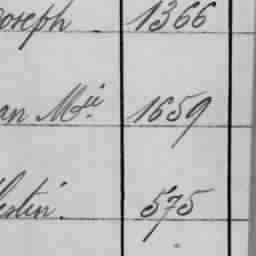 oseph 1366
an Mie 1659
lestin. 575